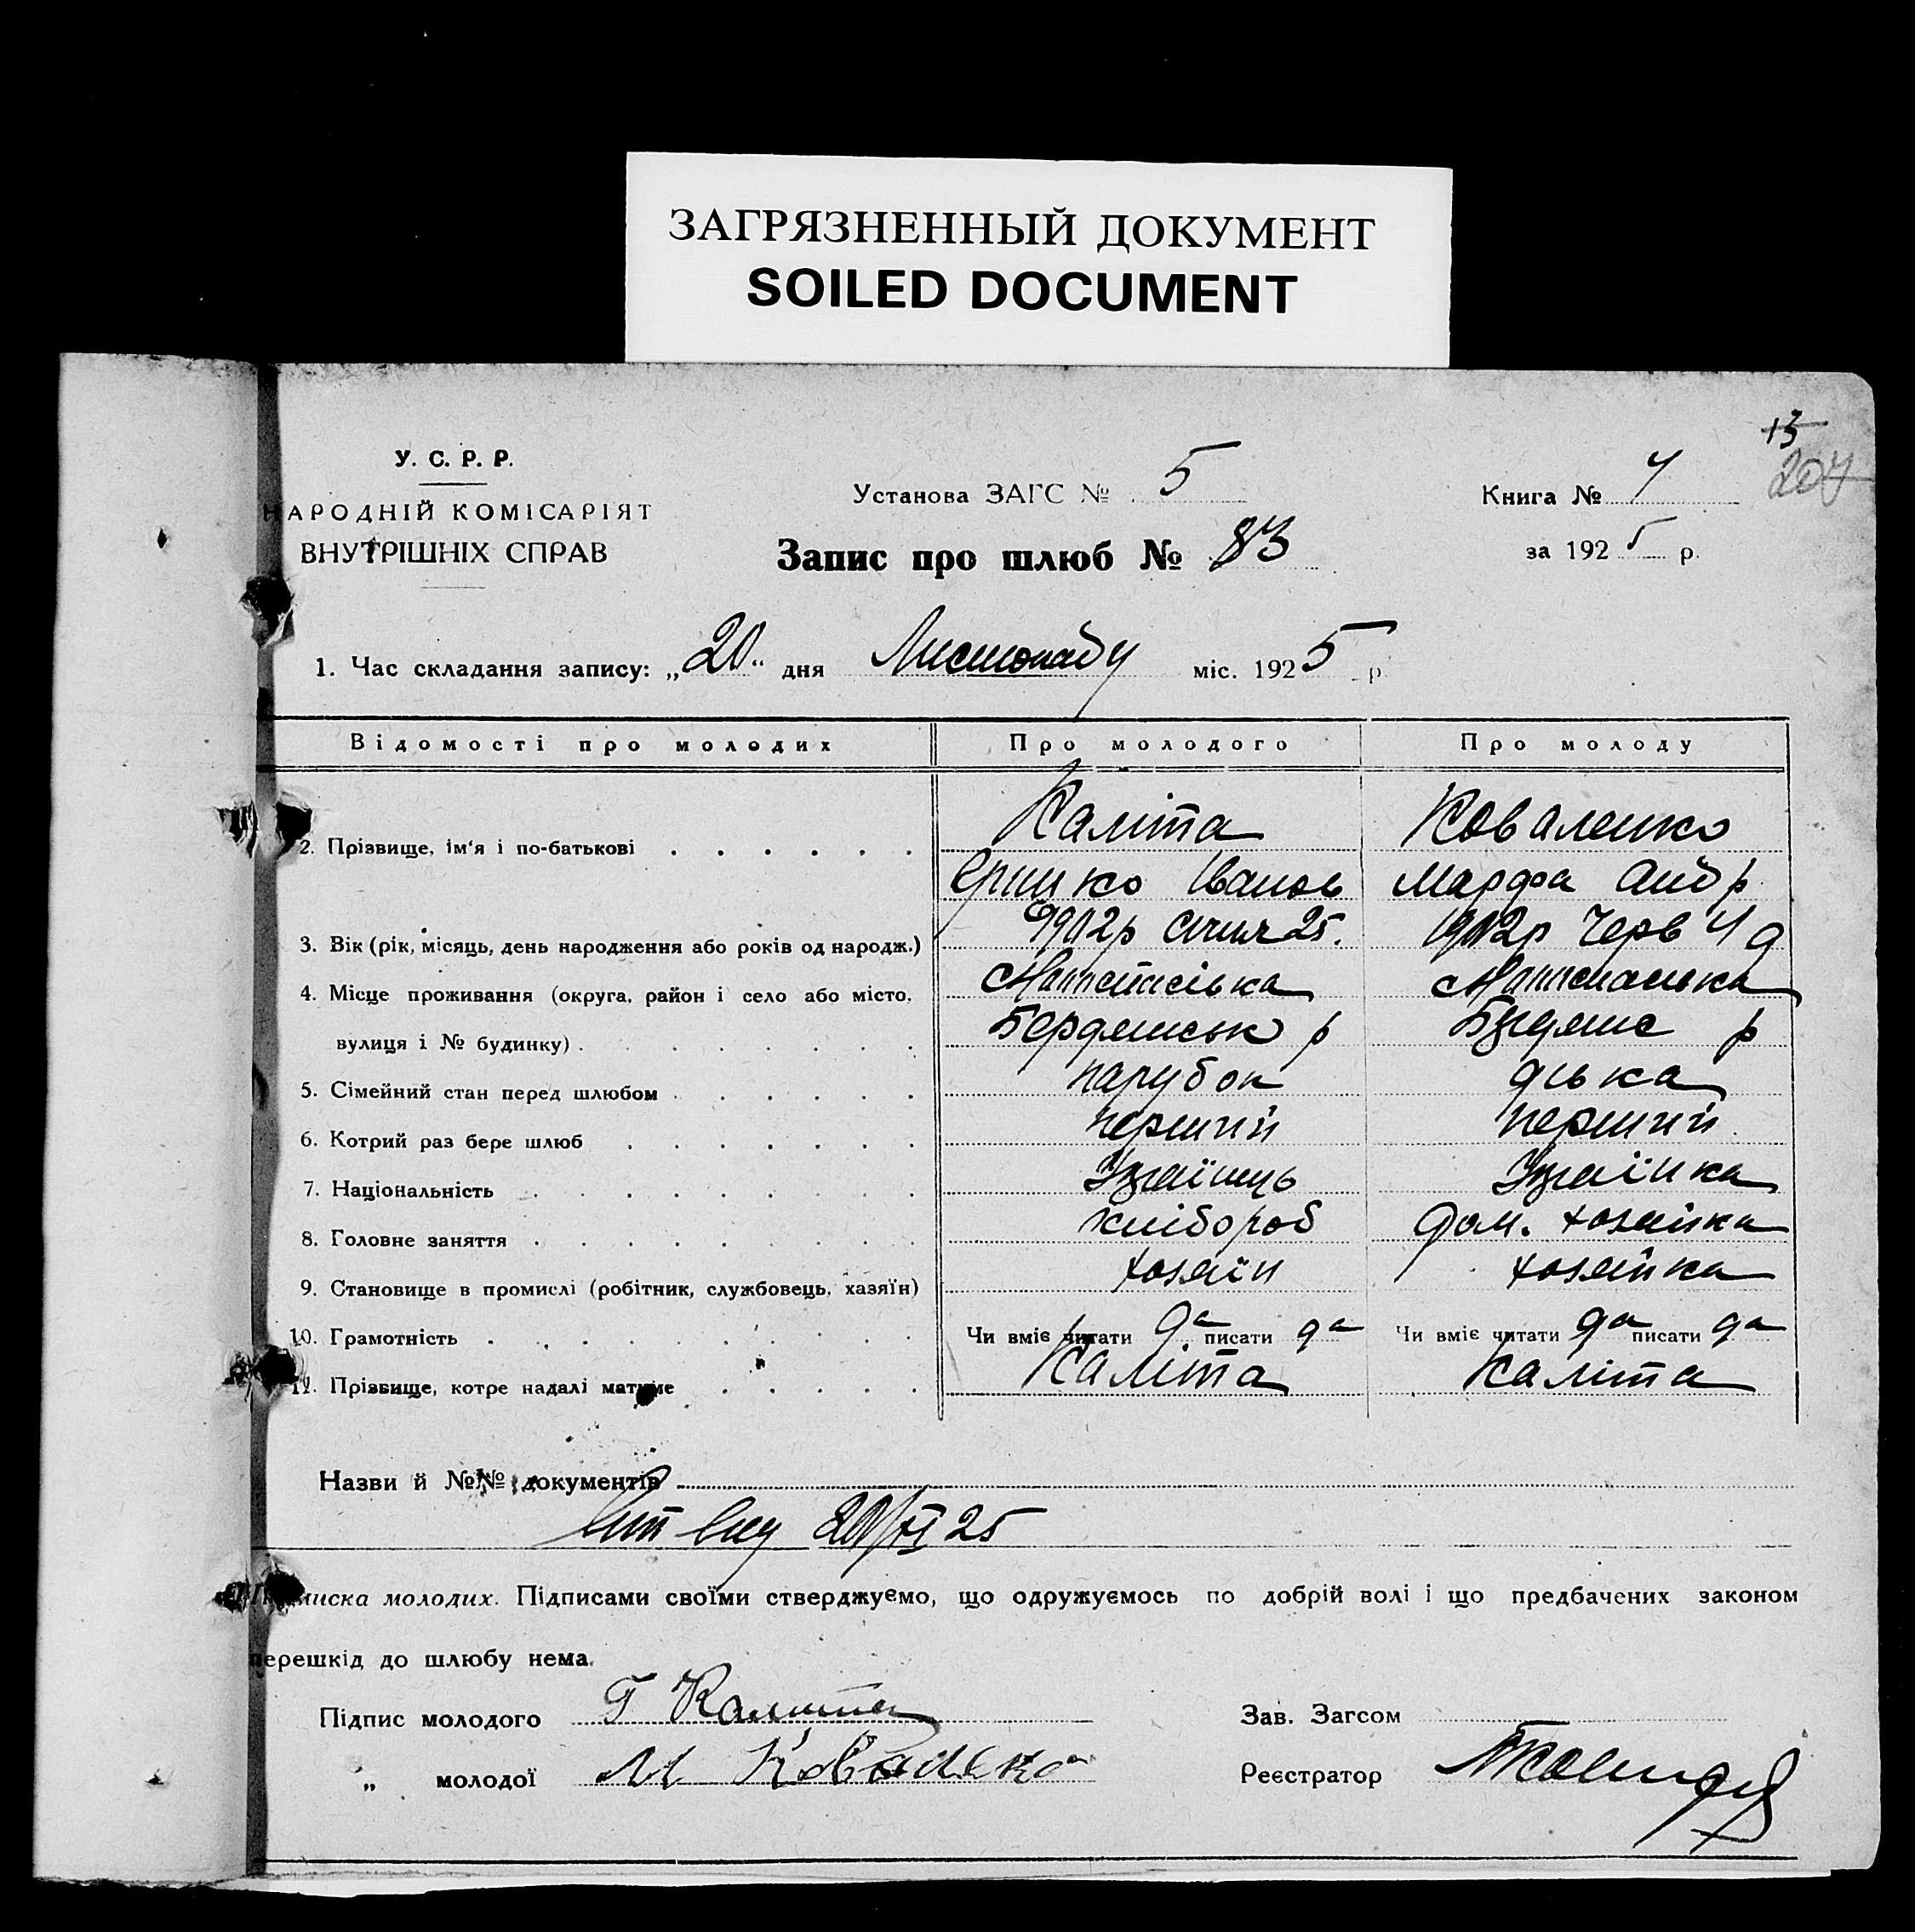 ЗАГРЯЗНЕННЫЙ ДОКУМЕНТ
SOILED DOCUMENT
13
204
У. С. Р. Р.
НАРОДНІЙ КОМІСАРІЯТ
ВНУТРІШНІХ СПРАВ
Установа ЗАГС № 5
Книга №
Запис про шлюб № 83
за 1925 р.
1. Час складання запису: „20“ дня Листопаду міс. 1925 р.
Відомості про молодих Про молодого Про молоду
Каліта Коваленко
2. Прізвище, ім'я і по-батькові
Іванов Марфа Андр
3. Вік (рік, місяць, день народження або років од народж.) 1902р Січня 25. 1902р Черв 4 д
4. Місце проживання (округа, район і село або місто,
вулиця і № будинку) Бердянськ р р
5. Сімейний стан перед шлюбом парубок дівка
6. Котрий раз бере шлюб перший перший
7. Національність Українць Українка
8. Головне заняття хлібороб дом. хозяйка
9. Становище в промислі (робітник, службовець, хазяїн) хозяїн хозяйка
10. Грамотність Чи вміє читати да писати да Чи вміє читати да писати да
11. Прізвище, котре надалі матиме Каліта Каліта
Назви й №№ документів
20/XI 25
Підписка молодих. Підписами своїми стверджуємо, що одружуємось по добрій волі і що предбачених законом
перешкід до шлюбу нема.
Підпис молодого Г Калита
Зав. Загсом
„ молодої М Ковалеко
Реєстратор